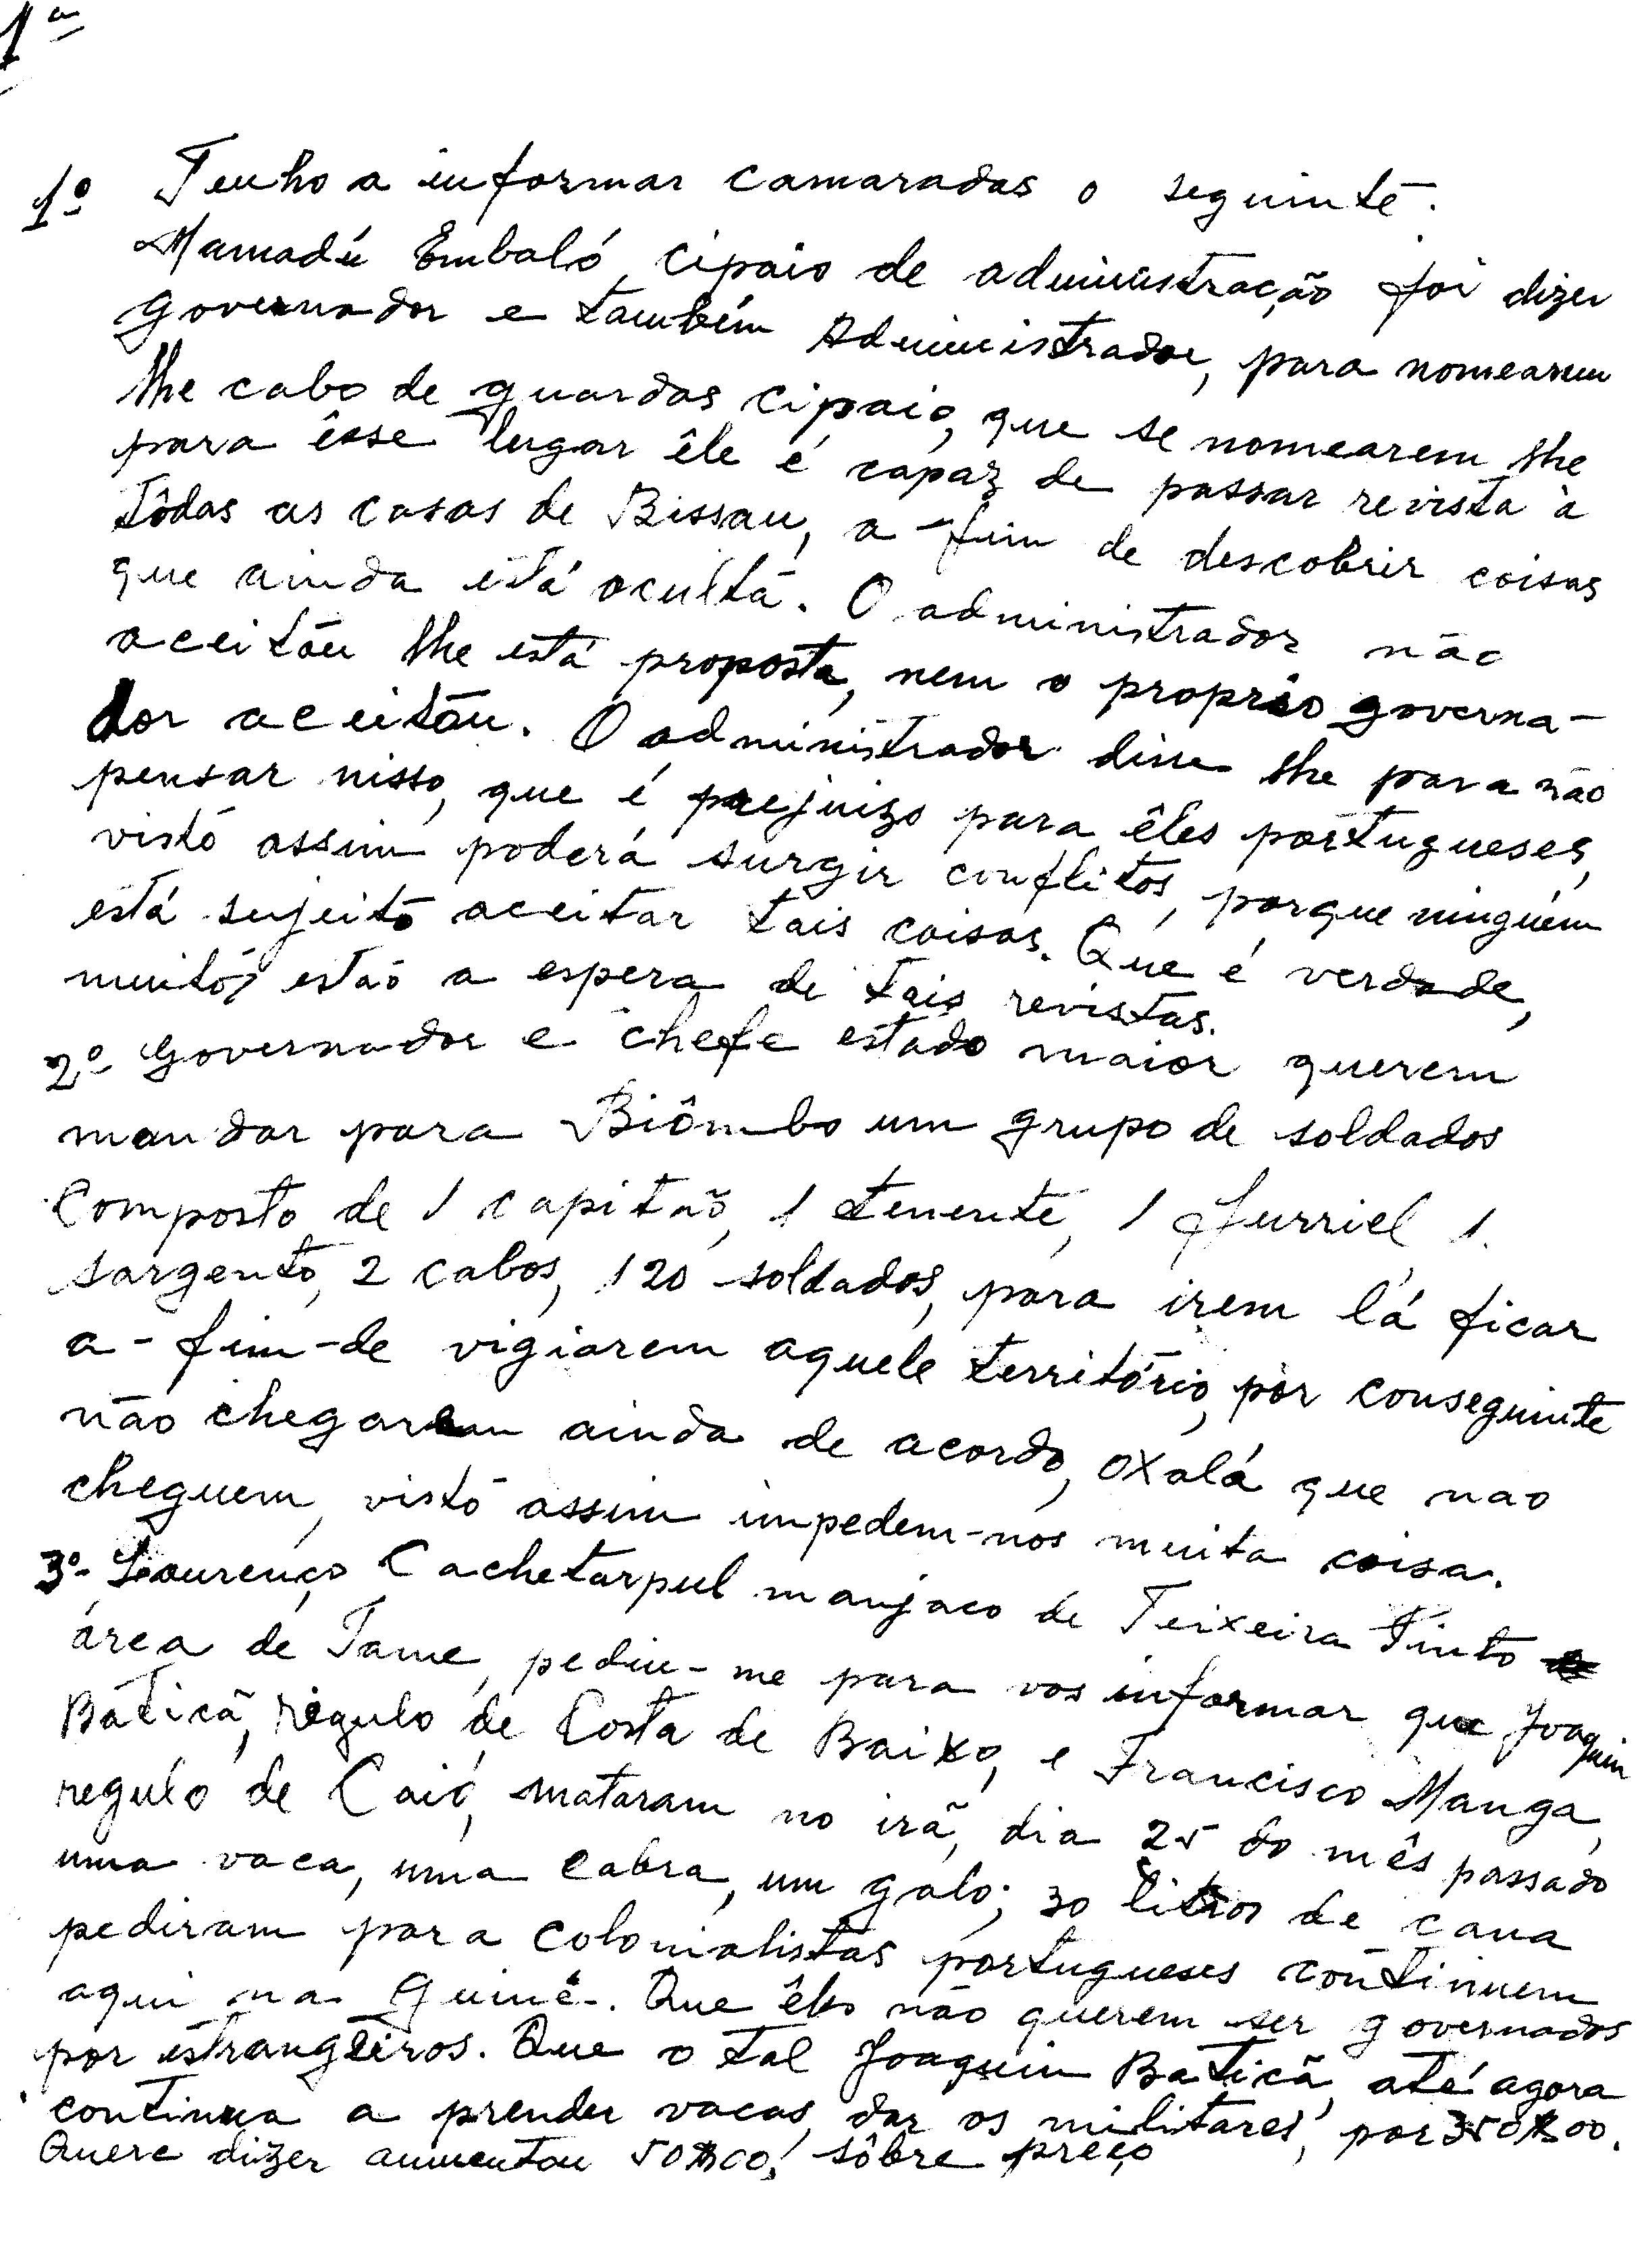 1ª
1º Tenho a informar camaradas o seguinte.
Mamadú Embaló, cipaio de administração foi dizer
governador e também Administrador, para nomearem
lhe cabo de guardas cipaio, que se nomearem lhe
para êsse lugar êle é capaz de passar revista à
tôdas as casas de Bissau, a-fim de descobrir coisas
que ainda está oculta. O administrador não
aceitou lhe está proposta, nem o proprio governa-
dor aceitou. O administrador disse lhe para não
pensar nisso, que é prejuizo para êles portugueses,
visto assim poderá surgir conflitos, porque ninguém
está sujeito aceitar tais coisas. Que é verdade,
muitos estão a espera de tais revistas.
2º Governador e chefe estado maior querem
mandar para Biômbo um grupo de soldados
Composto de 1 capitão, 1 tenente, 1 furriel, 1
sargento, 2 cabos, 120 soldados, para irem lá ficar
a-fim-de vigiarem aquele território, por conseguinte
não chegaram ainda de acordo, oxalá que nao
cheguem, visto assim impedem-nos muita coisa.
3º- Lourenço Cachetarpul manjaco de Teixeira Pinto
área de Tame, pediu-me para vos informar que Joaquim
Baticã, régulo de Costa de Baixo, e Francisco Manga,
regulo de Caió, mataram no irã, dia 25 do mês passado
uma vaca, uma cabra, um galo; 30 litros de cana
pediram para colonialistas portugueses continuem
aqui na Guiné. Que êles não querem ser governados
por estrangeiros. Que o tal Joaquim Baticã, até agora
continua a prender vacas, dar os militares, por 350$00.
Quere dizer aumentou 50$00, sôbre preço